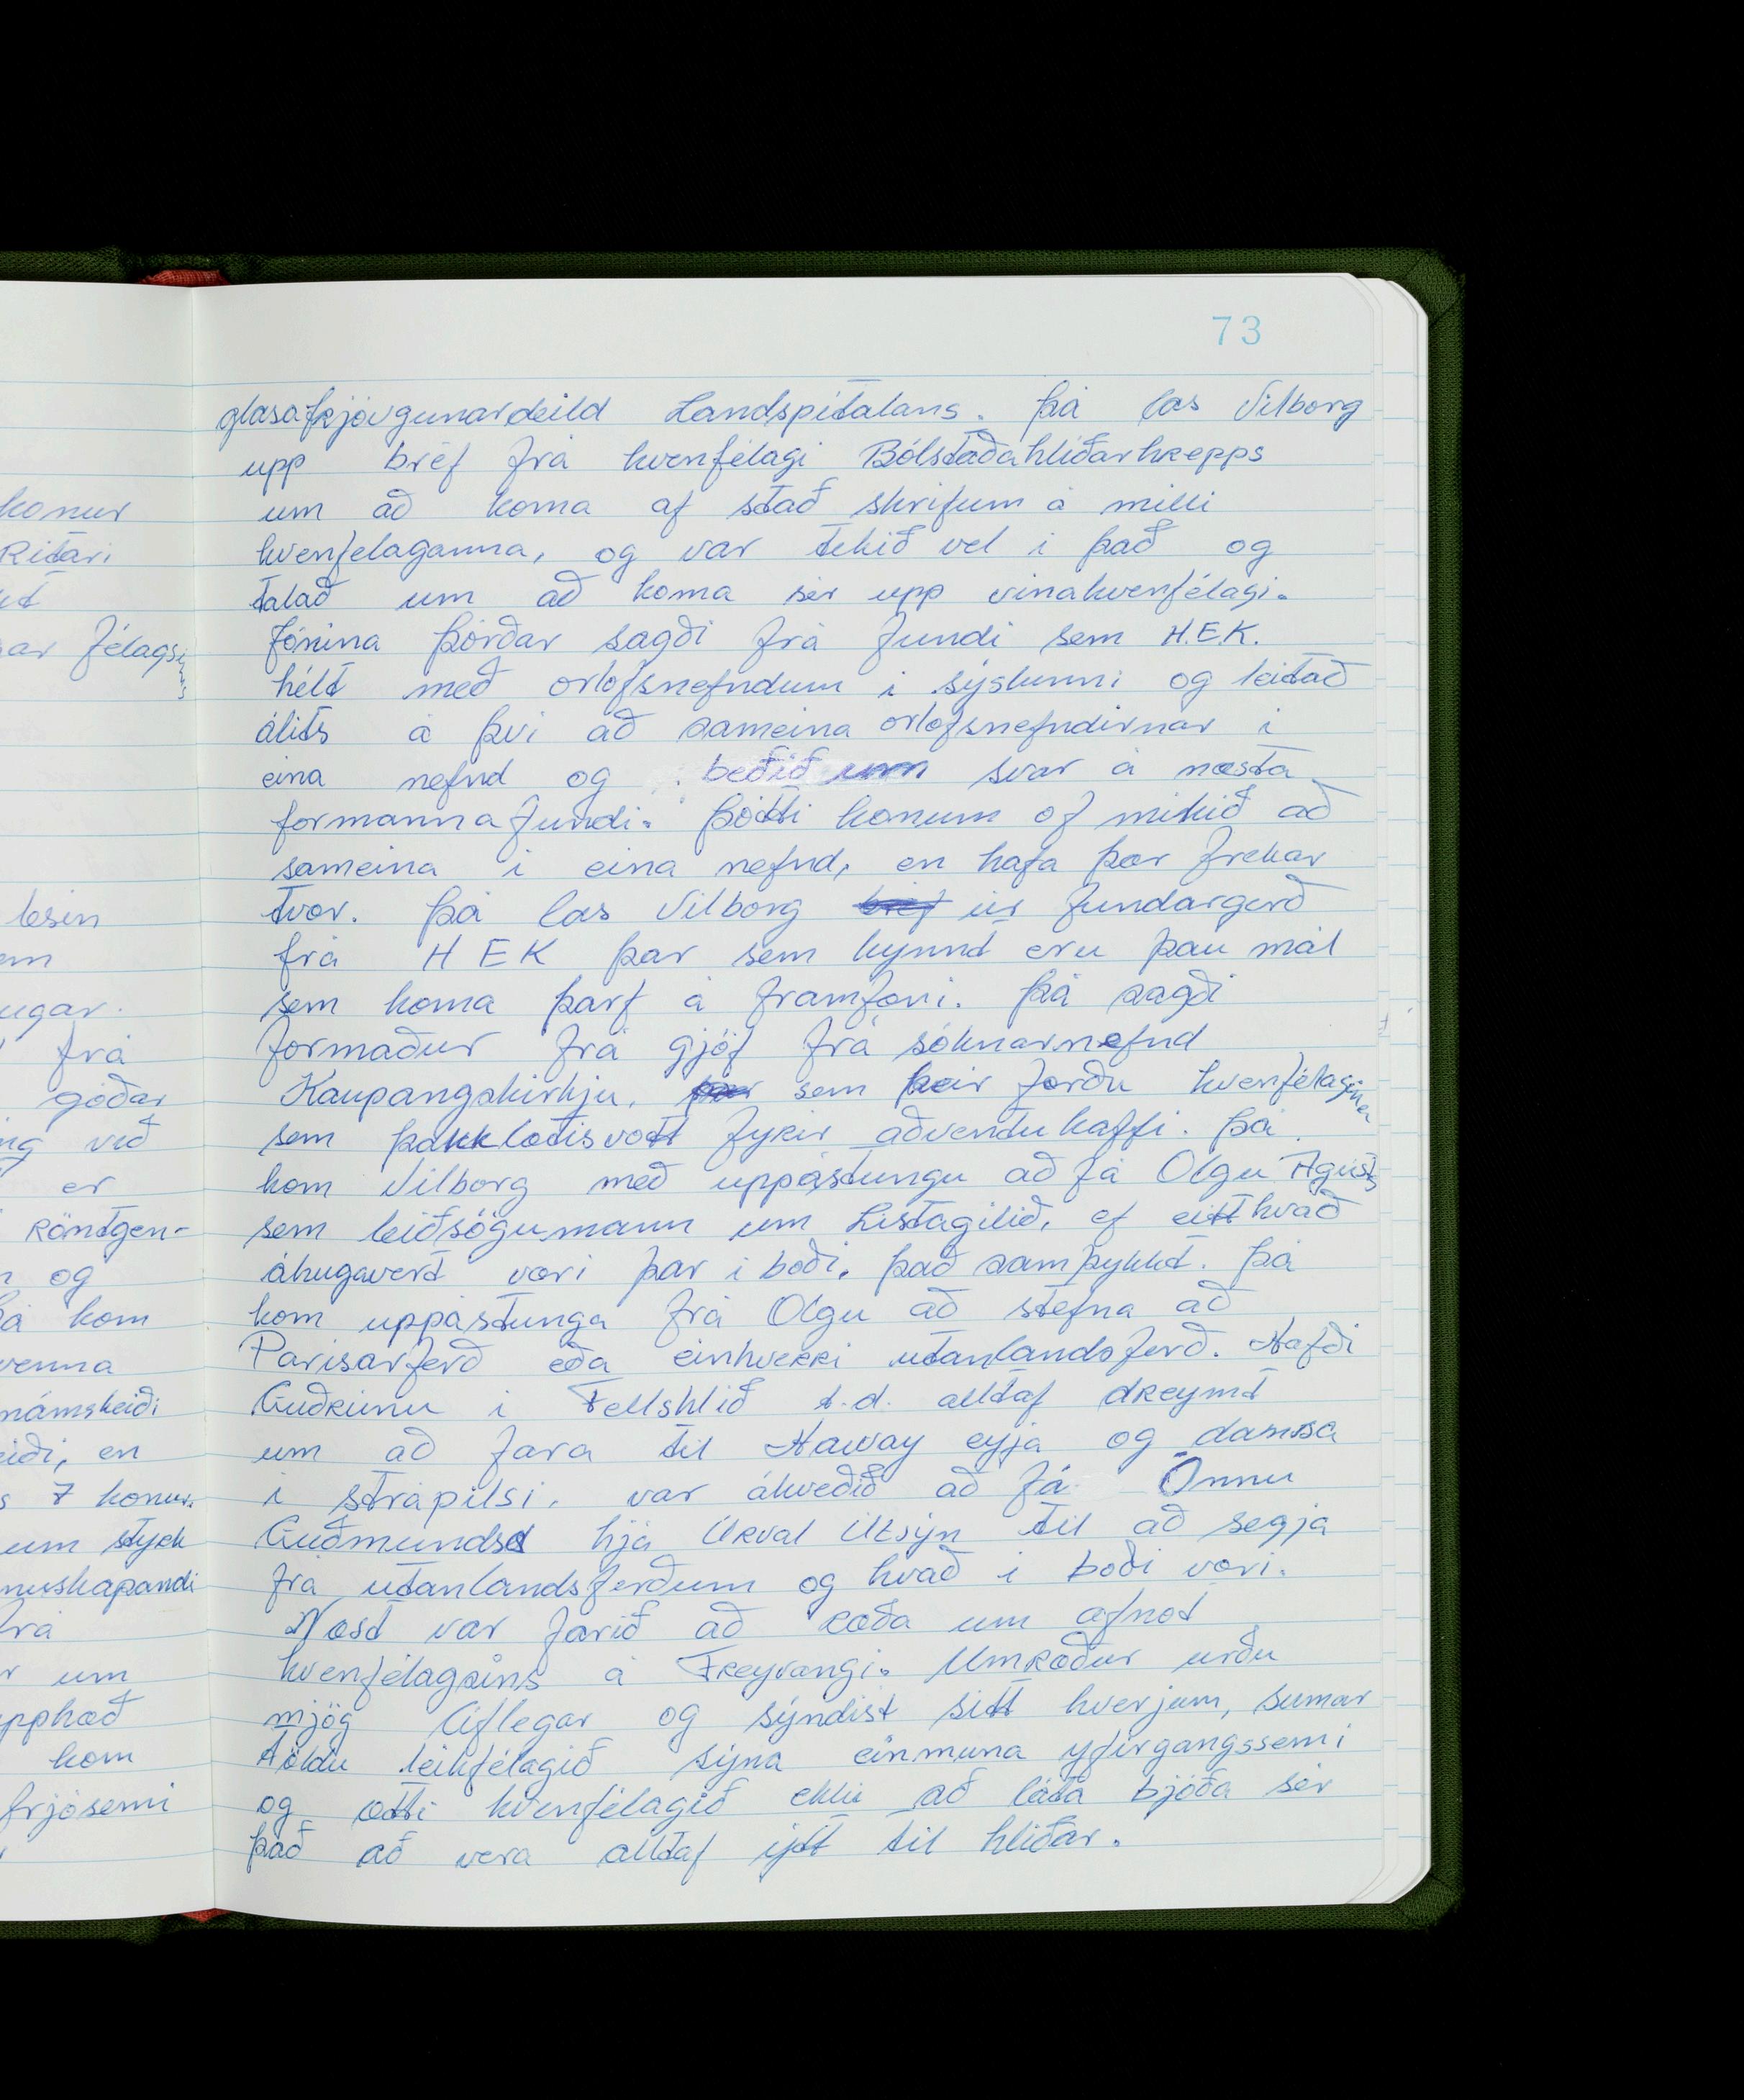 73
glasafrjóvgunardeild Landspítalans. Þá las Vilborg
upp bréf frá kvenfélagi Bólstaðahlíðarhrepps
um að koma af stað skrifum á milli
kvenfelaganna, og var tekið vel i það og
talað um að koma sér upp vinakvenfélagi.
Jónína Þórðar sagði frá fundi sem H.E.K.
hélt með orlofsnefndum i sýslunni og leitað
álits á því að sameina orlofsnefndirnar i
eina nefnd og beðið um svar á næsta
formannafundi. Þótti konum of mikið að
sameina i eina nefnd, en hafa þær frekar
tvær. Þá las Vilborg bréf úr fundargerð
frá H E K þar sem kynnt eru þau mál
sem koma þarf á framfæri. Þá sagði
formaður frá gjöf frá sóknarnefnd
Kaupangskirkju, þær sem þeir færðu kvenfélaginu
sem þakklætisvott fyrir aðventukaffi. Þá
kom Vilborg með uppástungu að fá Olgu Ágústs
sem leiðsögumann um Listagilið, ef eitthvað
áhugavert væri þar i boði, það samþykkt. Þá
kom uppástunga frá Olgu að stefna að
Parisarferð eða einhverri utanlandsferð. Hafði
Guðrúnu i Fellshlíð t.d. alltaf dreymt
um að fara til Haway eyja og dansa
i strápilsi, var ákveðið að fá Önnu
Guðmundsd hjá Úrval Útsýn til að segja
frá utanlandsferðum og hvað i boði væri.
Næst var farið að ræða um afnot
kvenfélagsins á Freyvangi. Umræður urðu
mjög líflegar og sýndist sitt hverjum, sumar
töldu leikfélagið sýna einmuna yfirgangssemi
og ætti kvenfélagið ekki að láta bjóða sér
það að vera alltaf ýtt til hliðar.
konur
Ritari
félagsins
lesin
ugar.
frá
góðar
við
er
röntgen-
og
kom
námskeiði
en
7 konur.
um styrk
um
upphæð
kom
frjósemi